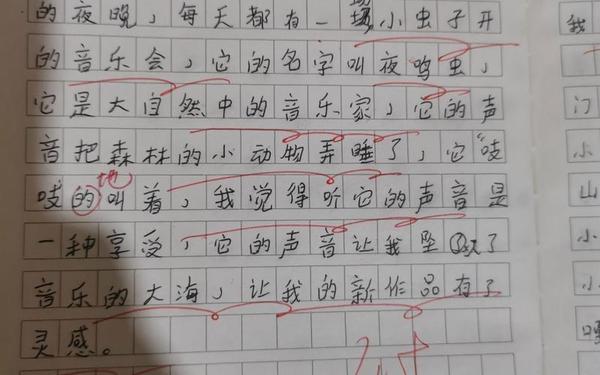 的夜晚，每天都有一场小虫子开
的音乐会，它的名字叫夜鸣虫，
它是大自然中的音乐家，它的声
音把森林的小动物弄睡了，它“吱
吱的地叫着，我觉得听它的声音是
一种享受，它的声音让我坠了
音乐的大海，让我的新作品有了
灵感。
我
门
小
山
小
小